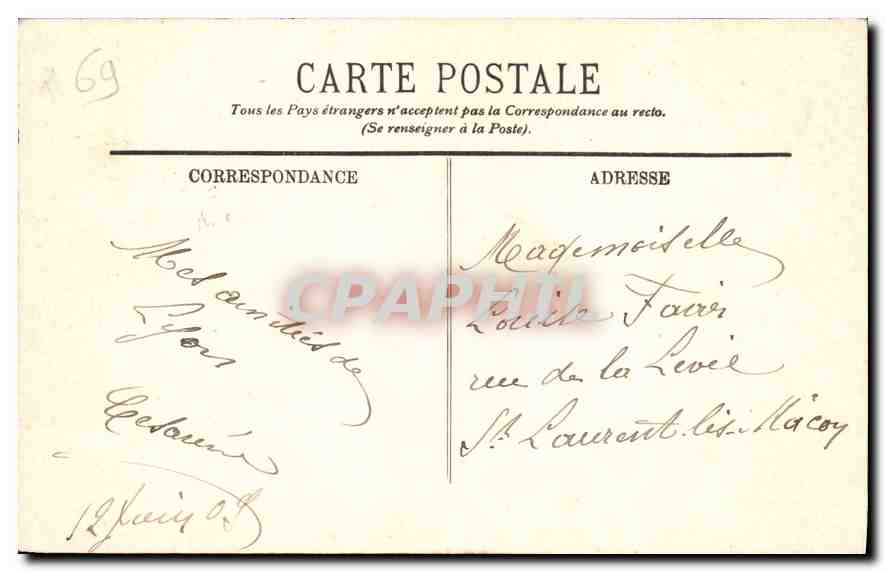 69
CARTE POSTALE
Tous les Pays étrangers n'acceptent pas la Correspondance au recto.
(Se renseigner à la Poste).
CORRESPONDANCE
Mes amitiés de
Lyon
12 Juin 09
ADRESSE
Mademoiselle
Louise
rue de la Levée
St Laurent-lès-Mâcon
CPAPHIL